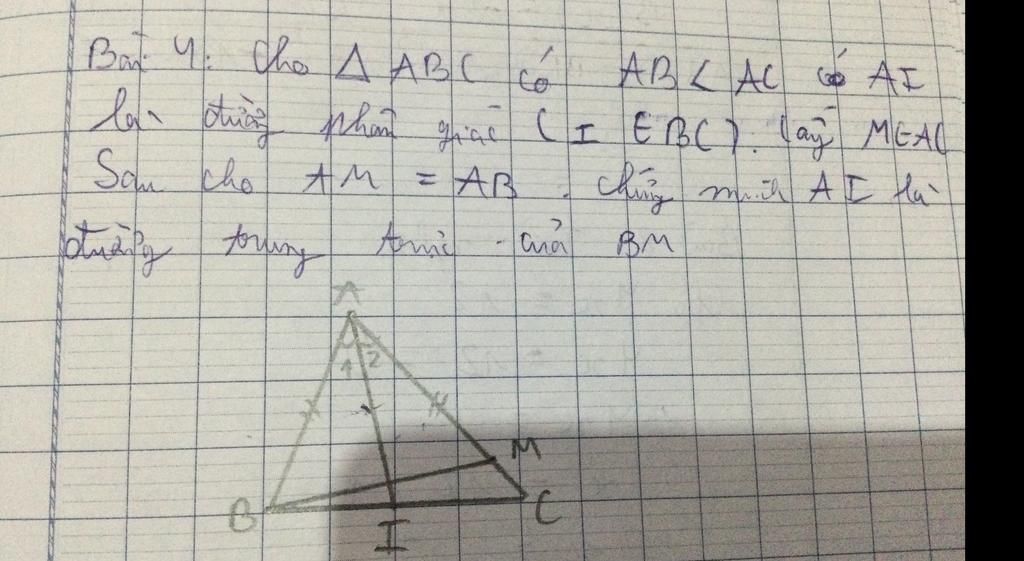 Bài 4: Cho Δ ABC có AB < AC có AI
là đường phân giác (I ∈ BC). Lấy M ∈ AC
Sao cho AM = AB. Chứng minh AI là
đường trung trực của BM
A
1 2
M
B I C